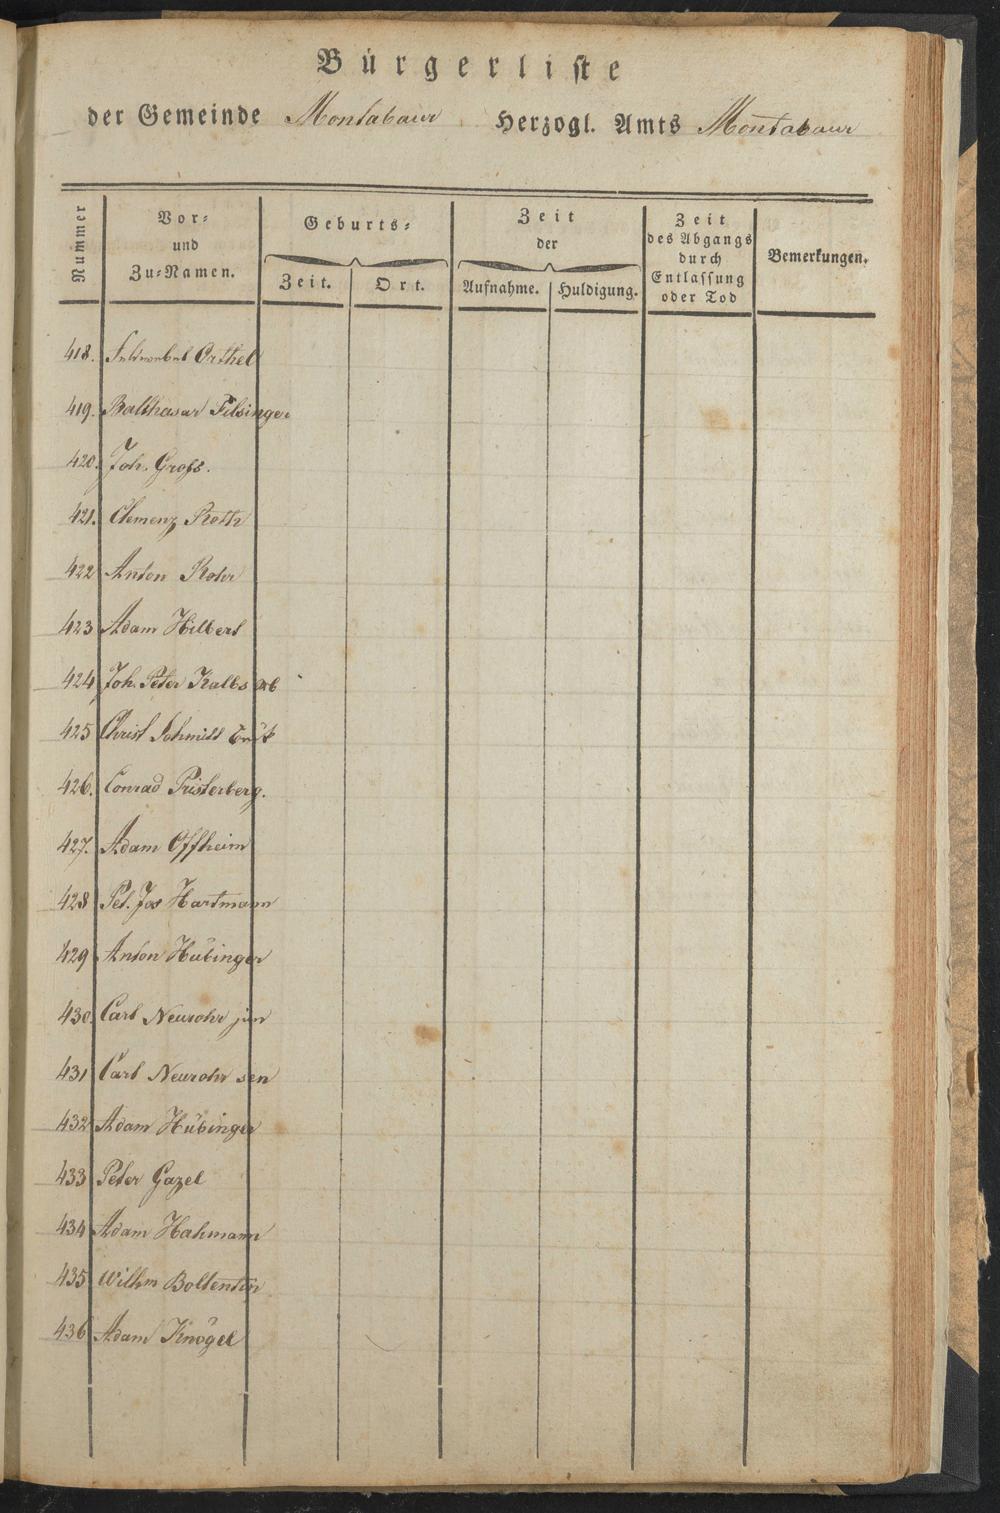 Bürgerliste
der Gemeinde Montabaur Herzogl. Amts Montabaur
Nummer
Vor-
und
Zu-Namen.
Geburts-
Zeit. Ort.
Zeit
der
Aufnahme. Huldigung.
Zeit
des Abgangs
durch
Entlassung
oder Tod
Bemerkungen.
418. Orthel
419. Balthasar Filsinger
420. Joh. Groß.
421. Clemenz Roth
422 Anton Rohr
423 Adam Hilbert
424 Joh. Peter Kalb
425 Christ Schmidt
426. Conrad Pristerberg.
427. Adam Offheim
428 Pet. Jos Hartmann
429 Anton Hübinger
430. Carl Neurohr jun
431 Carl Neurohr sen
432 Adam Hübinger
433 Peter Gazel
434 Adam Hahmann
435 Wilhm Boltentin
436 Adam Knögel